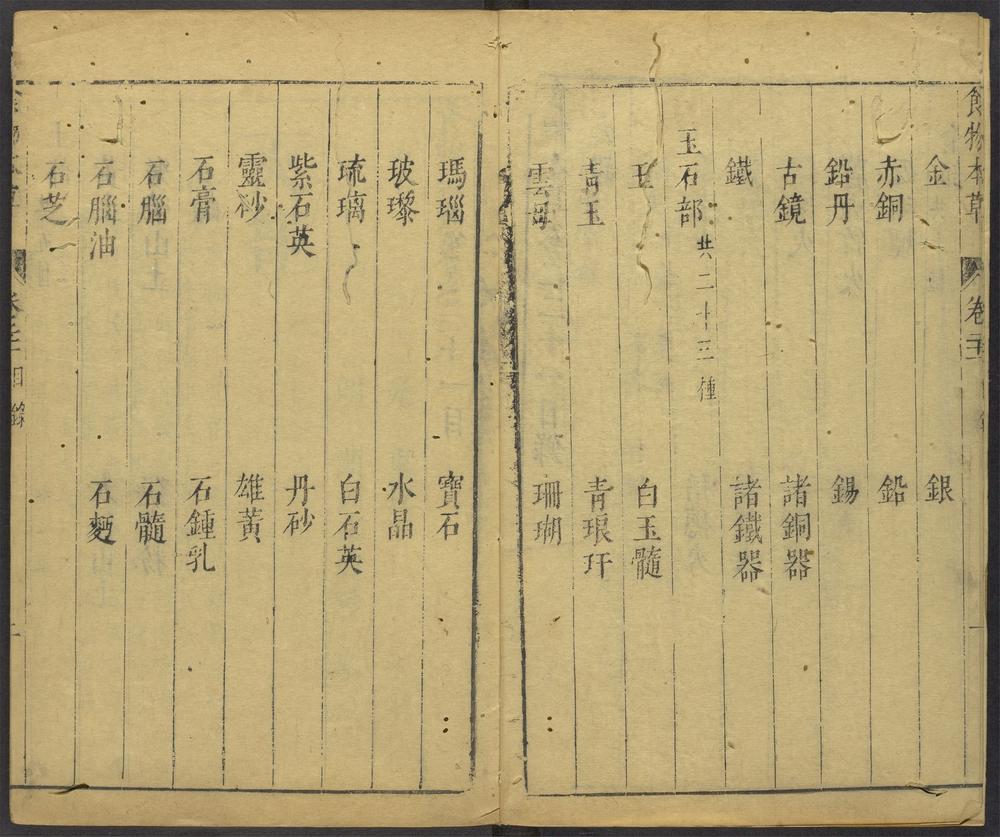 食物本草 卷二十一
金 銀
赤銅 鉛
鉛丹 錫
古鏡 諸銅器
鐵 諸鐵器
玉石部 共二十三種
玉 白玉髓
青玉 青琅玕
雲母 珊瑚
瑪瑙 寶石
玻瓈 水晶
琉璃 白石英
紫石英 丹砂
靈砂 雄黃
石膏 石鍾乳
石腦 石髓
石腦油 石麪
石芝
目錄